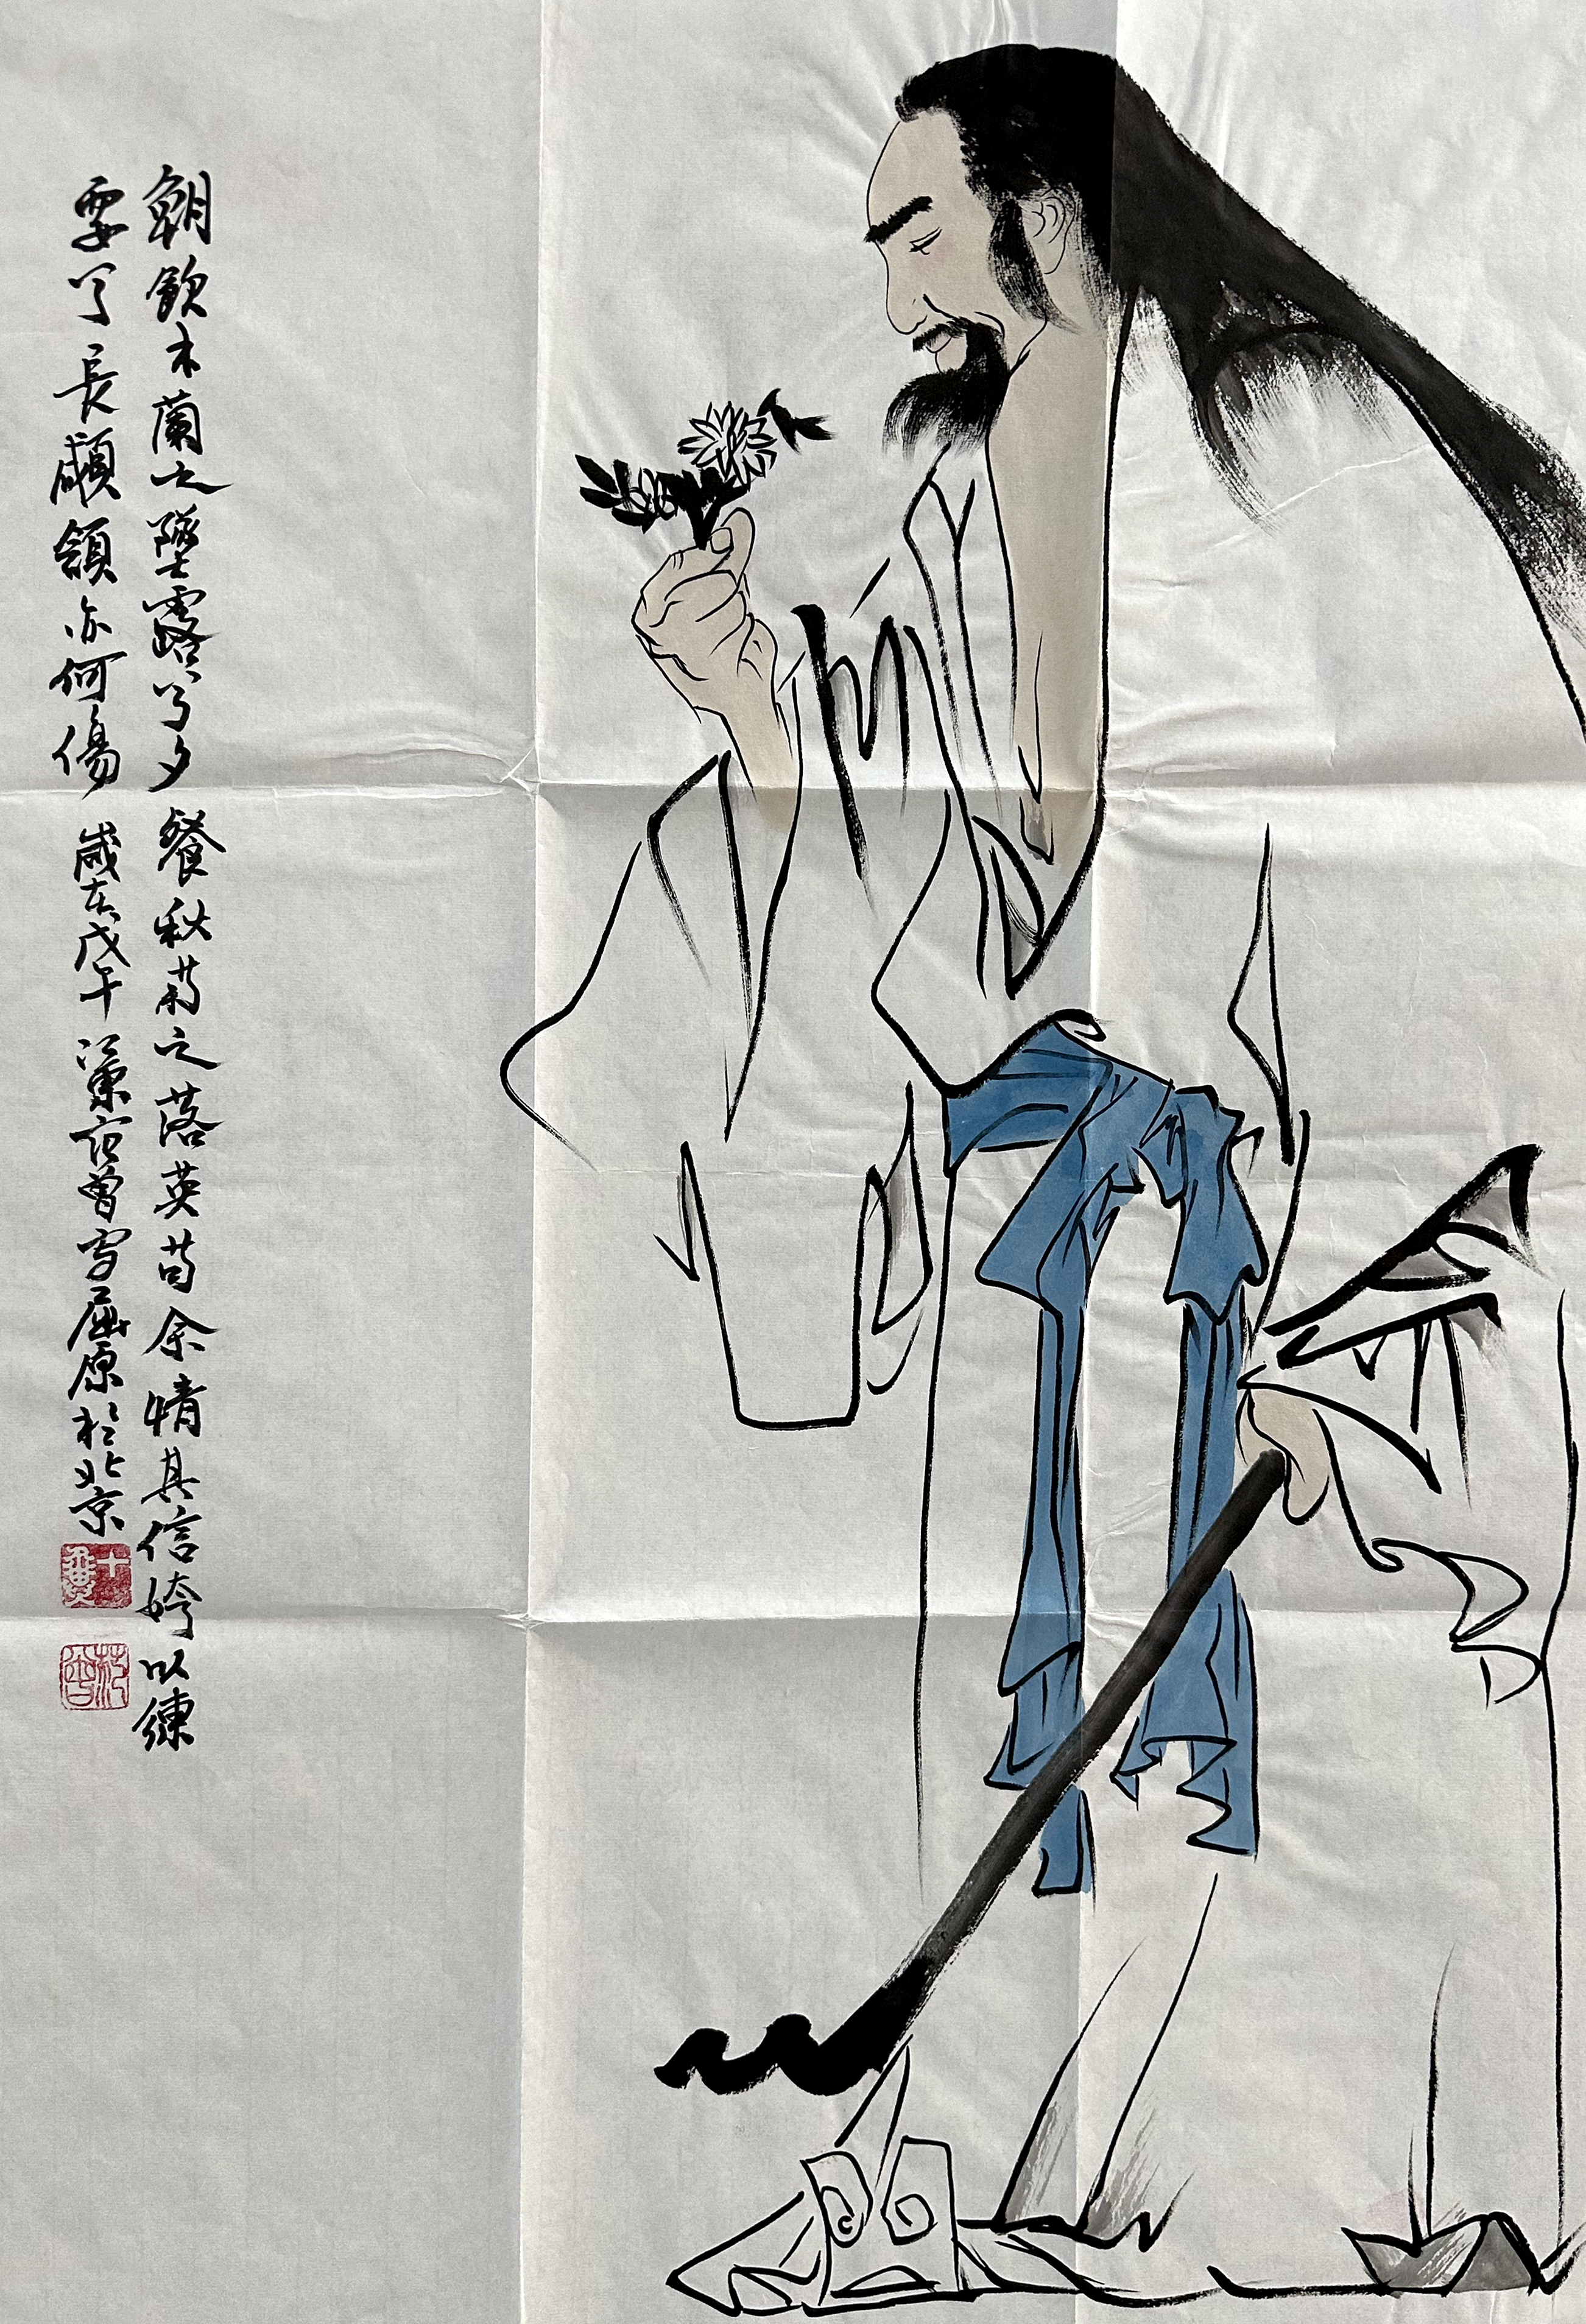 朝飲木蘭之墜露兮夕餐秋菊之落英苟余情其信姱以練
要兮長顑頷亦何傷 歲在戊午 江東范曾寫屈原於北京
十翼
范曾